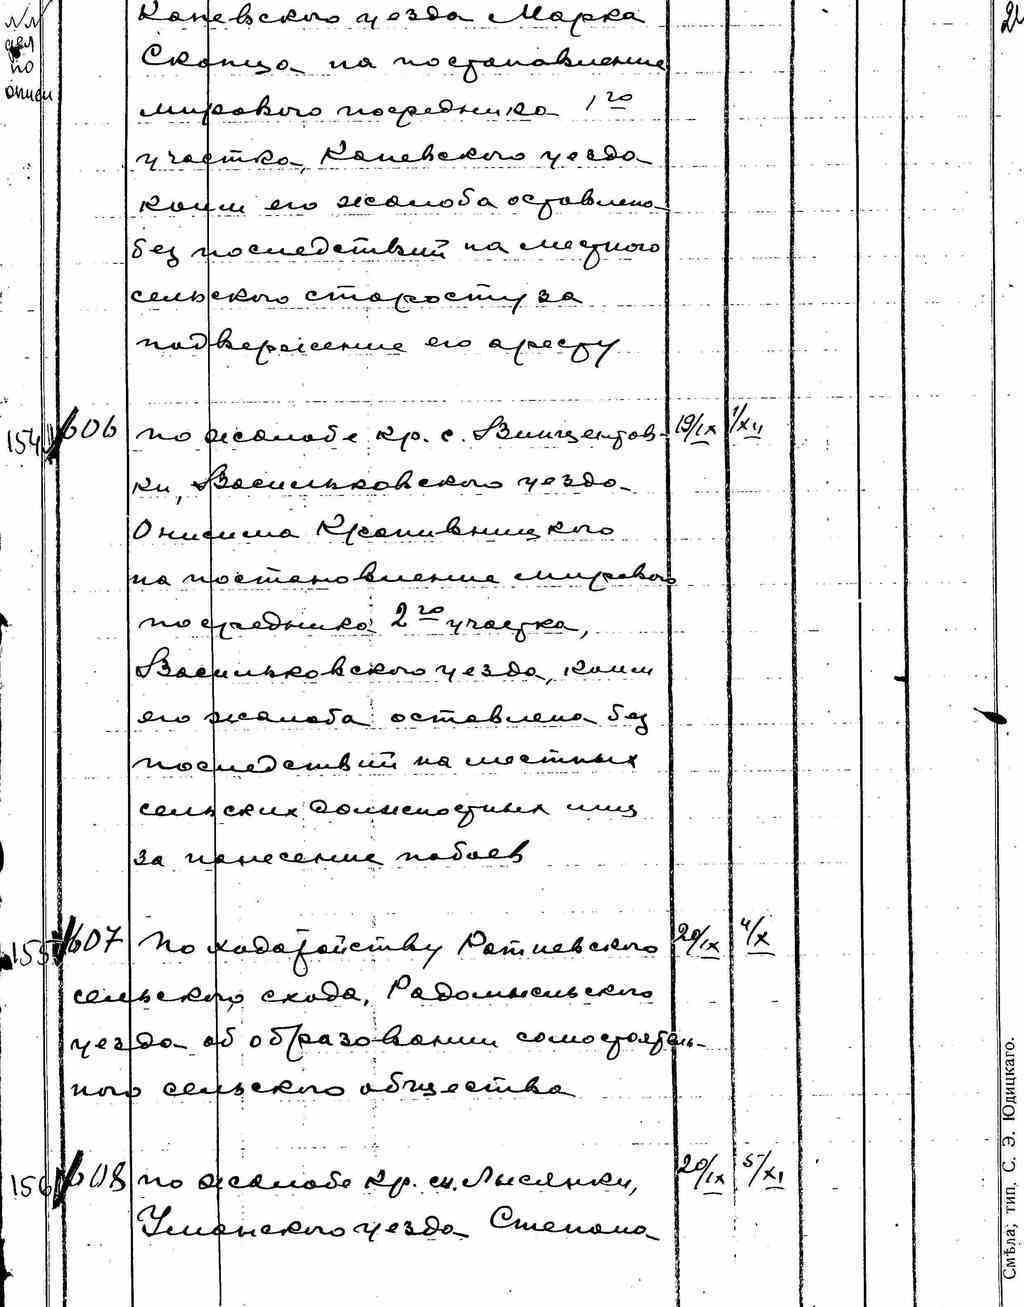 NN
дел
по
описи
21
Каневского уезда Марка
Скопца на постановление
мирового посредника 1го
участка, Каневского уезда
коим его жалоба оставлена
без последствий на местного
сельского старосту за
подвержение его аресту
154 606 по жалобе кр. с. Винцентов- 19/IX 1/XII
ки, Васильковского уезда
Онисима Крапивницкого
на постановление мирового
посредника 2го участка,
Васильковского уезда, коим
его жалоба оставлена без
последствий на местных
сельских должностных лиц
за нанесение побоев
155 607 По ходатайству Ратиевского 20/IX 4/X
сельского схода, Радомысльского
уезда об образовании самостоятель-
ного сельского общества
156 608 по жалобе кр. м. Лысянки, 20/IX 5/XI
Уманского уезда Степана
Смѣла; тип. С. Э. Юдицкаго.